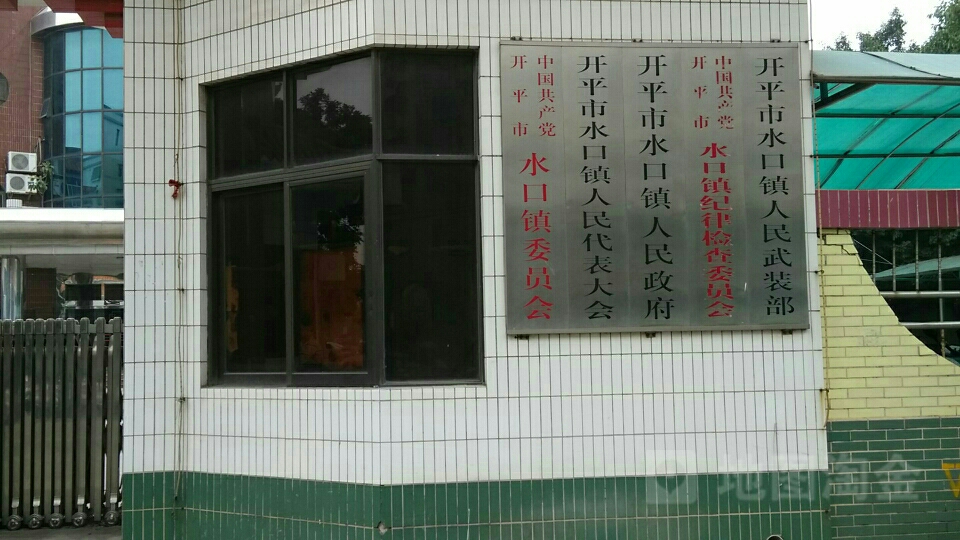 中国共产党
开平市
水口镇委员会
开平市水口镇人民代表大会
开平市水口镇人民政府
中国共产党
开平市
水口镇纪律检查委员会
开平市水口镇人民武装部
地图淘金